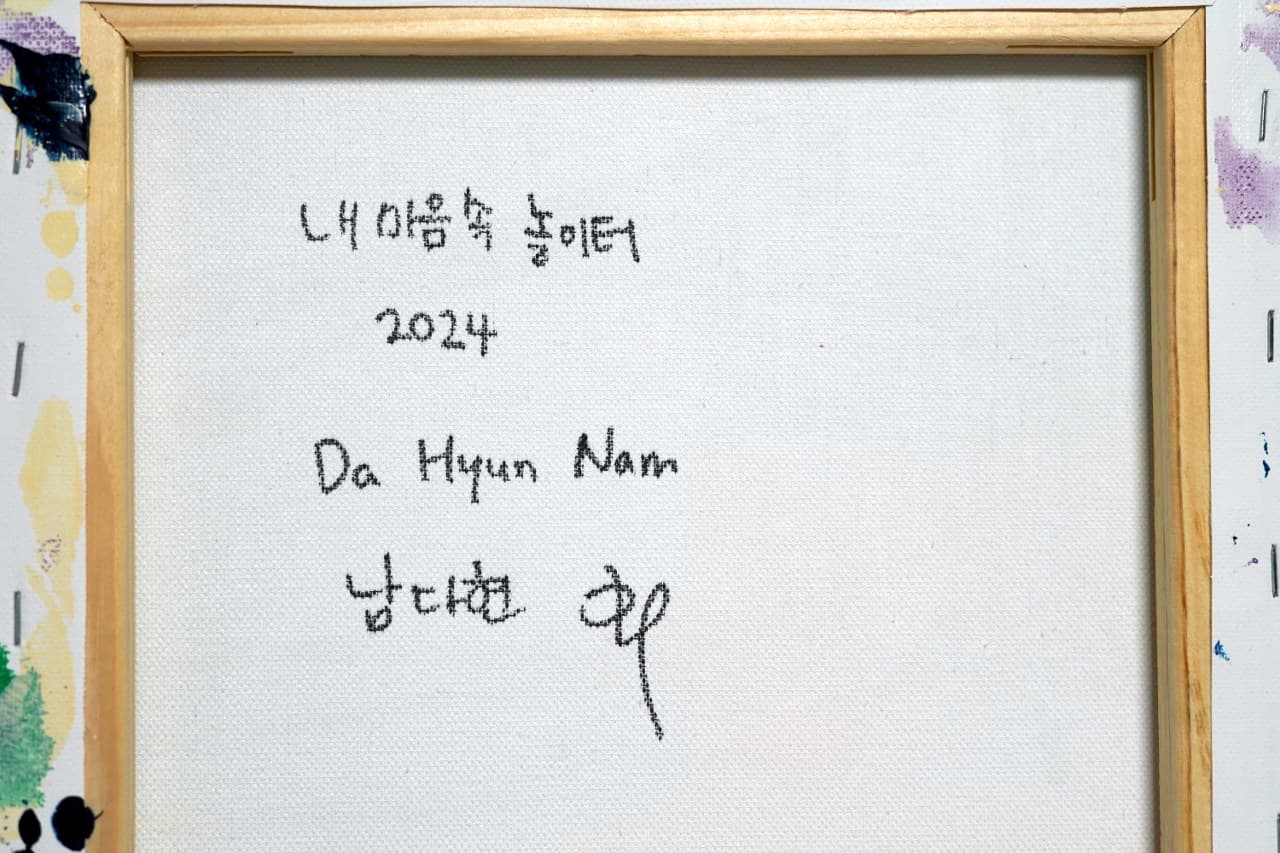 내 마음 속 놀이터
2024
Da Hyun Nam
남다현